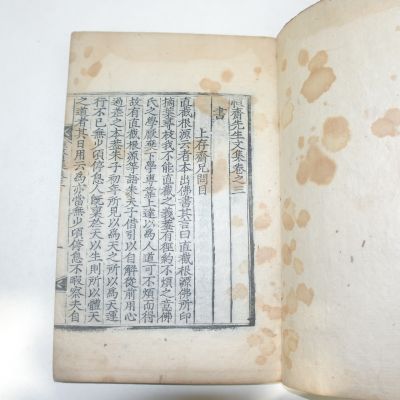 恒齋先生文集卷之三
書
上存齋兄問目
直截根源云者本出佛書其言曰直截根源佛所印
摘葉尋枝我不能直截之義蓋有徑約不煩之意佛
氏之學厭棄下學上達以爲人道可不煩而得
故有直截根源等語朱子借以自解從前用心
過差之本朱子初年所見以爲天之所以爲天運
行不已無少頃停息人旣稟於天以生則所以體天
之道者其日用云爲亦當無少頃停息不暇察夫自